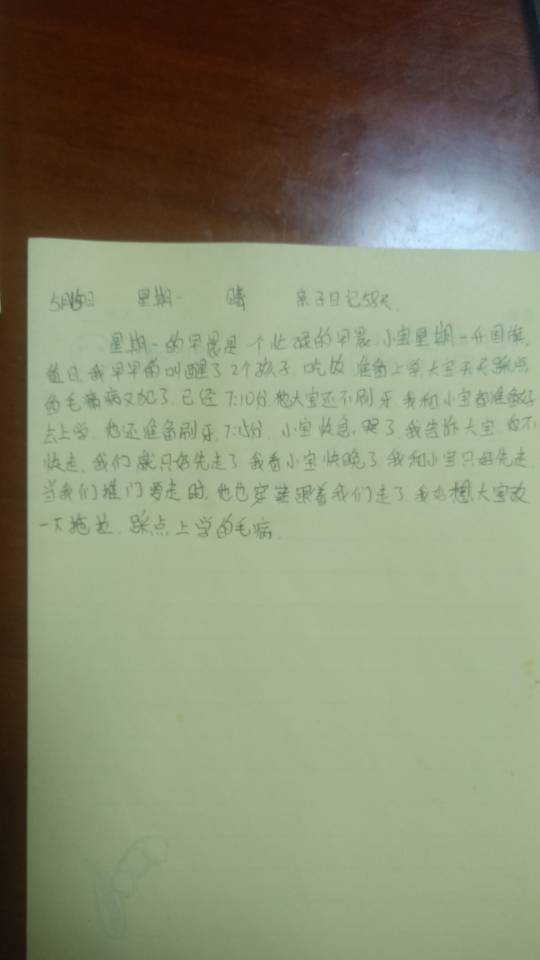 星期一 晴 亲子日记58天
星期一的早晨是一个忙碌的早晨.小宝星期一升国旗,
值日.我早早的叫醒了2个孩子.吃饭 准备上学大宝天天踩点
的毛病又犯了.已经7:10分.他大宝还不刷牙 我和小宝都准备好
去上学.他还准备刷牙.7:15分.小宝快急 哭了.我告诉大宝 你不
快走.我们就只好先走了 我看小宝快晚了 我和小宝只好先走
当我们推门要走时,他也穿鞋跟着我们走了.我想大宝改
一下拖拉.踩点上学的毛病.